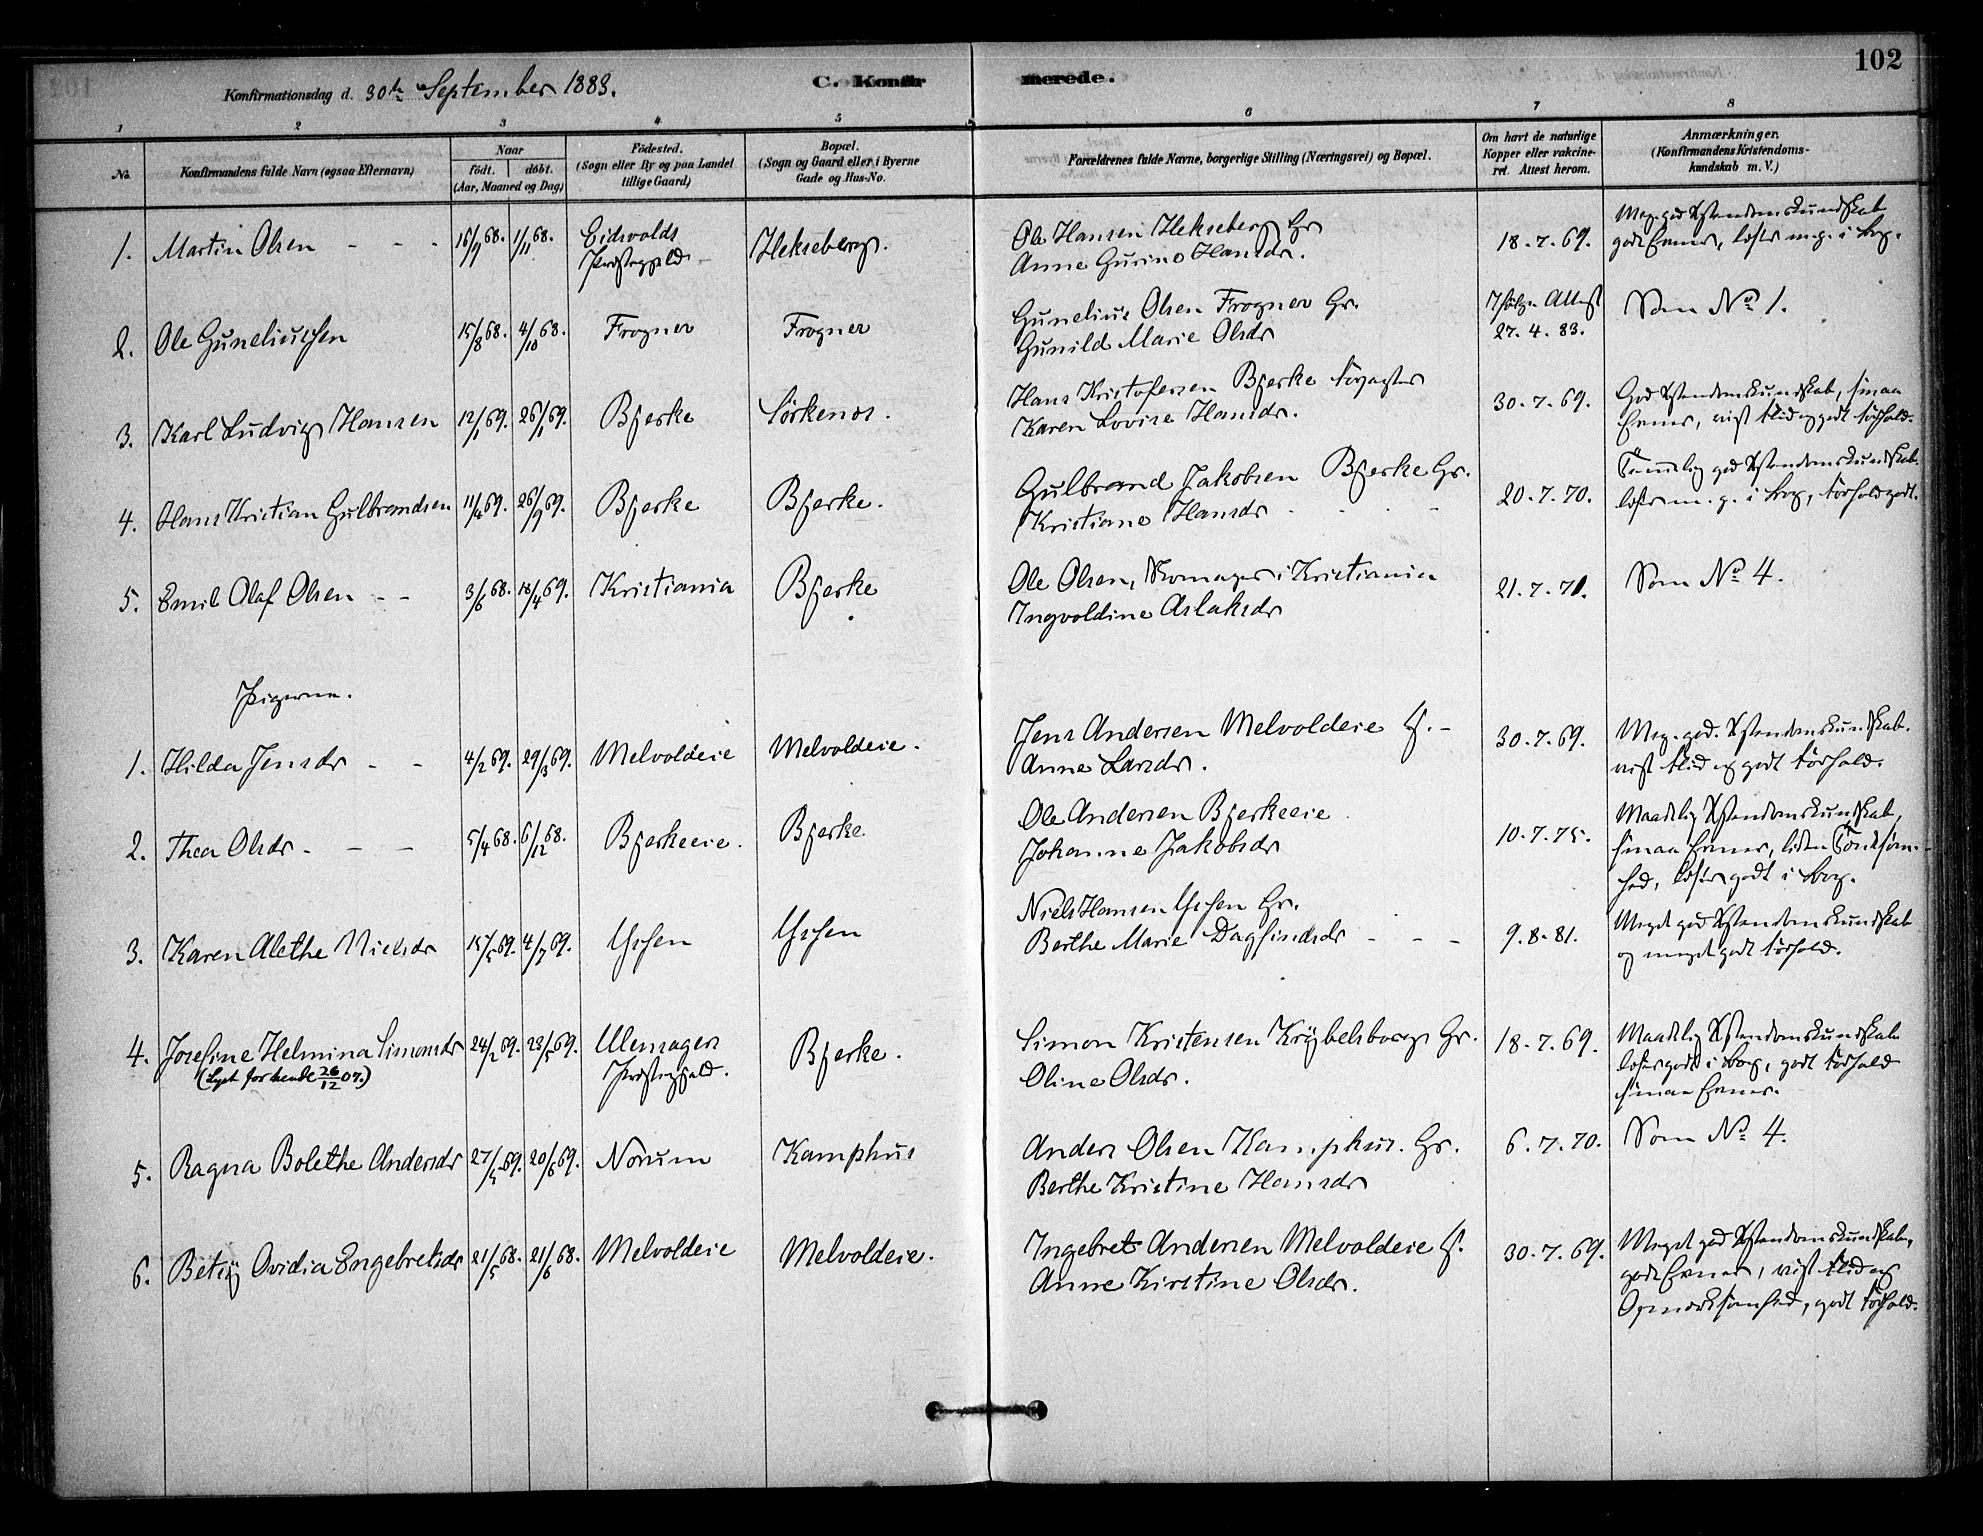 102
Konfirmationsdag d. 30te September 1883.
C. Konfirmerede.
1 2 3 4 5 6 7 8
No.
Konfirmandens fulde Navn (ogsaa Efternavn)
Naar
født. døbt.
(Aar, Maaned og Dag)
Fødested.
(Sogn eller By og paa Landet
tillige Gaard)
Bopæl.
(Sogn og Gaard eller i Byerne
Gade og Hus-No.
Forældrenes fulde Navne, borgerlige Stilling (Næringsvei) og Bopæl.
Om havt de naturlige
Kopper eller vakcine-
ret. Attest herom.
Anmærkninger.
(Konfirmandens Kristendoms-
kundskab m. V.)
1. Martin Olsen - - - 16/9 68. 1/11 68. Eidsvolds Præstegjeld - Hekseberg. Ole Hansen Hekseberg Gr
Anne Gurine Hansdr. 18-7-69. Meg. god Xstendomskundskab
gode Evner, læser m.g. i bog.
2. Ole Guneliussen 15/8 68. 4/10 68. Frogner Frogner Gunelius Olsen Frogner Gr.
Gunild Marie Olsdr Ifølge Attest
27-4-83. Som No 1.
3. Karl Ludvig Hansen 12/1 69. 26/1 69. Bjerke Sørkenos. Hans Kristofersen Bjerke forpagter
Karen Lovise Hansdr. 30-7-69. God Xstendomskundskab, smaa
Evner, vist flid og godt forhold.
4. Hans Kristian Gulbrandsen 11/4 69. 26/9 69. Bjerke Bjerke. Gulbrand Jakobsen Bjerke Gr.
Kristiane Hansdr 20-7-70. Temmelig god Xstendomskundskab.
læser m.g. i bog, forhold godt.
5. Emil Olaf Olsen - - 3/6 68. 18/4 69. Kristiania Bjerke Ole Olsen, Skomager i Kristiania
Ingvoldine Aslaksdr 21-7-71. Som No 4.
Pigerne.
1. Hilda Jensdr - - 4/2 69. 29/3 69. Melvoldeie Melvoldeie. Jens Andersen Melvoldeie -
Anne Larsdr. 30-7-69. Meg. god. Xstendomskundskab.
vist flid og godt forhold.
2. Thea Olsdr - - - 5/4 68. 6/12 68. Bjerkeeie. Bjerke Ole Andersen Bjerkeeie
Johanne Jakobsdr 10-7-75. Maadelig Xstendomskundskab,
smaa Evner, liden Tænksom-
hed, læser godt i bog.
3. Karen Alethe Nielsdr 15/5 69. 4/7 69. Ussen Ussen Niels Hansen Ussen Gr.
Berthe Marie Dagfindsdr - - - 9-8-81. Meget god Xstendomskundskab
og meget godt forhold.
4. Josefine Helmina Simonsdr 24/2 69. 23/5 69. Ullensagers Præstegjeld. Bjerke. Simon Kristensen Krybelsborg Gr.
(Lyst for hende 26/12 07.) Oline Olsdr. 18-7-69. Maadelig Xstendomskundskab
læser godt i bog, godt forhold
smaa Evner.
5. Ragna Bolethe Andersdr 27/5 69. 20/6 69. Norum Kamphus Anders Olsen Kamphus. Gr.
Berthe Kristine Hansdr 6-7-70. Som No 4.
6. Betsy Ovidia Engebretsdr 21/5 68. 21/6 68. Melvoldeie Melvoldeie. Ingebret Andersen Melvoldeie
Anne Kirstine Olsdr. 30-7-69. Meget god Xstendomskundskab,
gode Evner, vist flid og
Opmærksomhed, godt forhold.